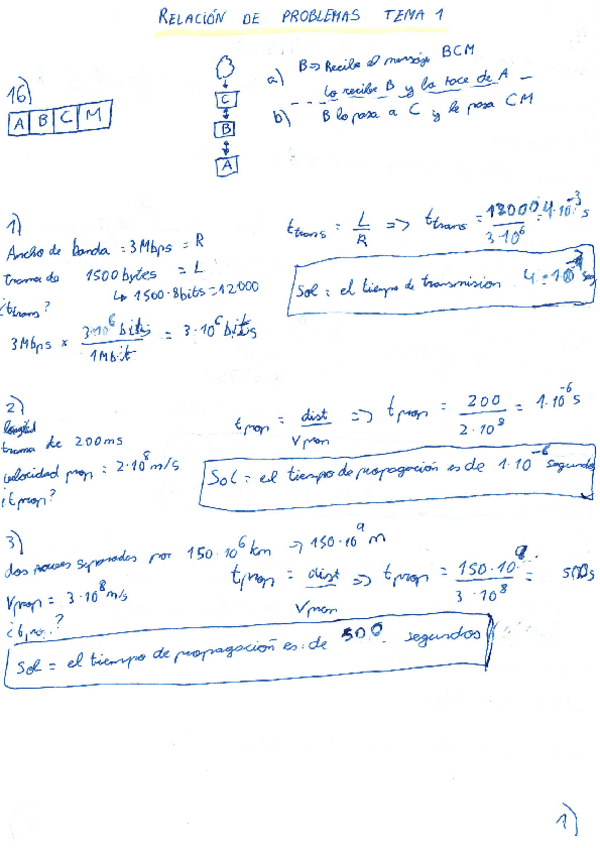 RELACIÓN DE PROBLEMAS TEMA 1
16)
A B C M
C
B
A
a) B => Recibe el mensaje BCM
Lo recibe B y lo tace de A
b) B lo pasa a C y le pasa CM
1)
Ancho de banda = 3 Mbps = R
trama de 1500 bytes = L
↳ 1500·8bits = 12000
¿t trans?
3 Mbps × 3·10⁶ bits / 1 Mbit = 3·10⁶ bits
t trans = L / R => t trans = 12000 / 3·10⁶ = 4·10⁻³ s
Sol = el tiempo de transmision 4·10 seg
2)
longitud
trama de 200ms
velocidad prop = 2·10⁸ m/s
¿t prop?
t prop = dist / v prop => t prop = 200 / 2·10⁸ = 1·10⁻⁶ s
Sol = el tiempo de propagación es de 1·10⁻⁶ segundos
3)
dos naves separadas por 150·10⁶ km → 150·10⁹ m
V prop = 3·10⁸ m/s
¿t pro.?
t prop = dist / V prop => t prop = 150·10⁹ / 3·10⁸ = 500s
Sol = el tiempo de propagación es: de 500 segundos
1)